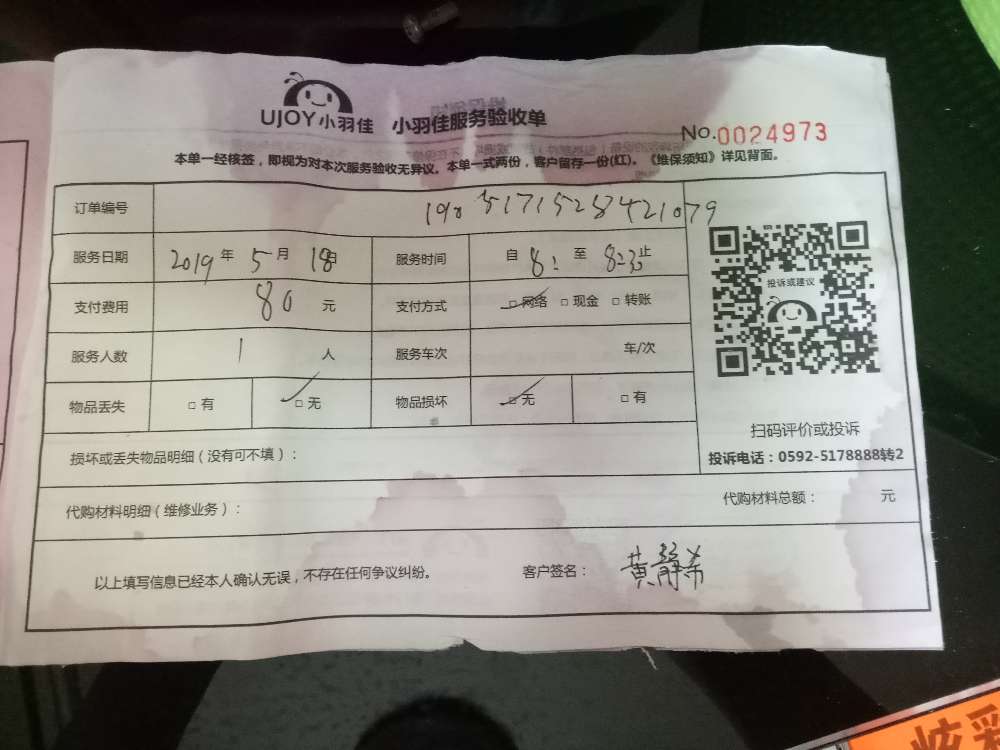 UJOY小羽佳 小羽佳服务验收单
No.0024973
本单一经核签，即视为对本次服务验收无异议。本单一式两份，客户留存一份(红)。《维保须知》详见背面。
订单编号 1905171528421079
服务日期 2019年5月18日 服务时间 自8: 至8:30止
支付费用 80元 支付方式 □网络 □现金 □转账
投诉或建议
服务人数 1人 服务车次 车/次
物品丢失 □有 □无 物品损坏 □无 □有
扫码评价或投诉
损坏或丢失物品明细（没有可不填）：
投诉电话：0592-5178888转2
代购材料明细（维修业务）：
代购材料总额： 元
以上填写信息已经本人确认无误，不存在任何争议纠纷。 客户签名：黄静茶
炫彩